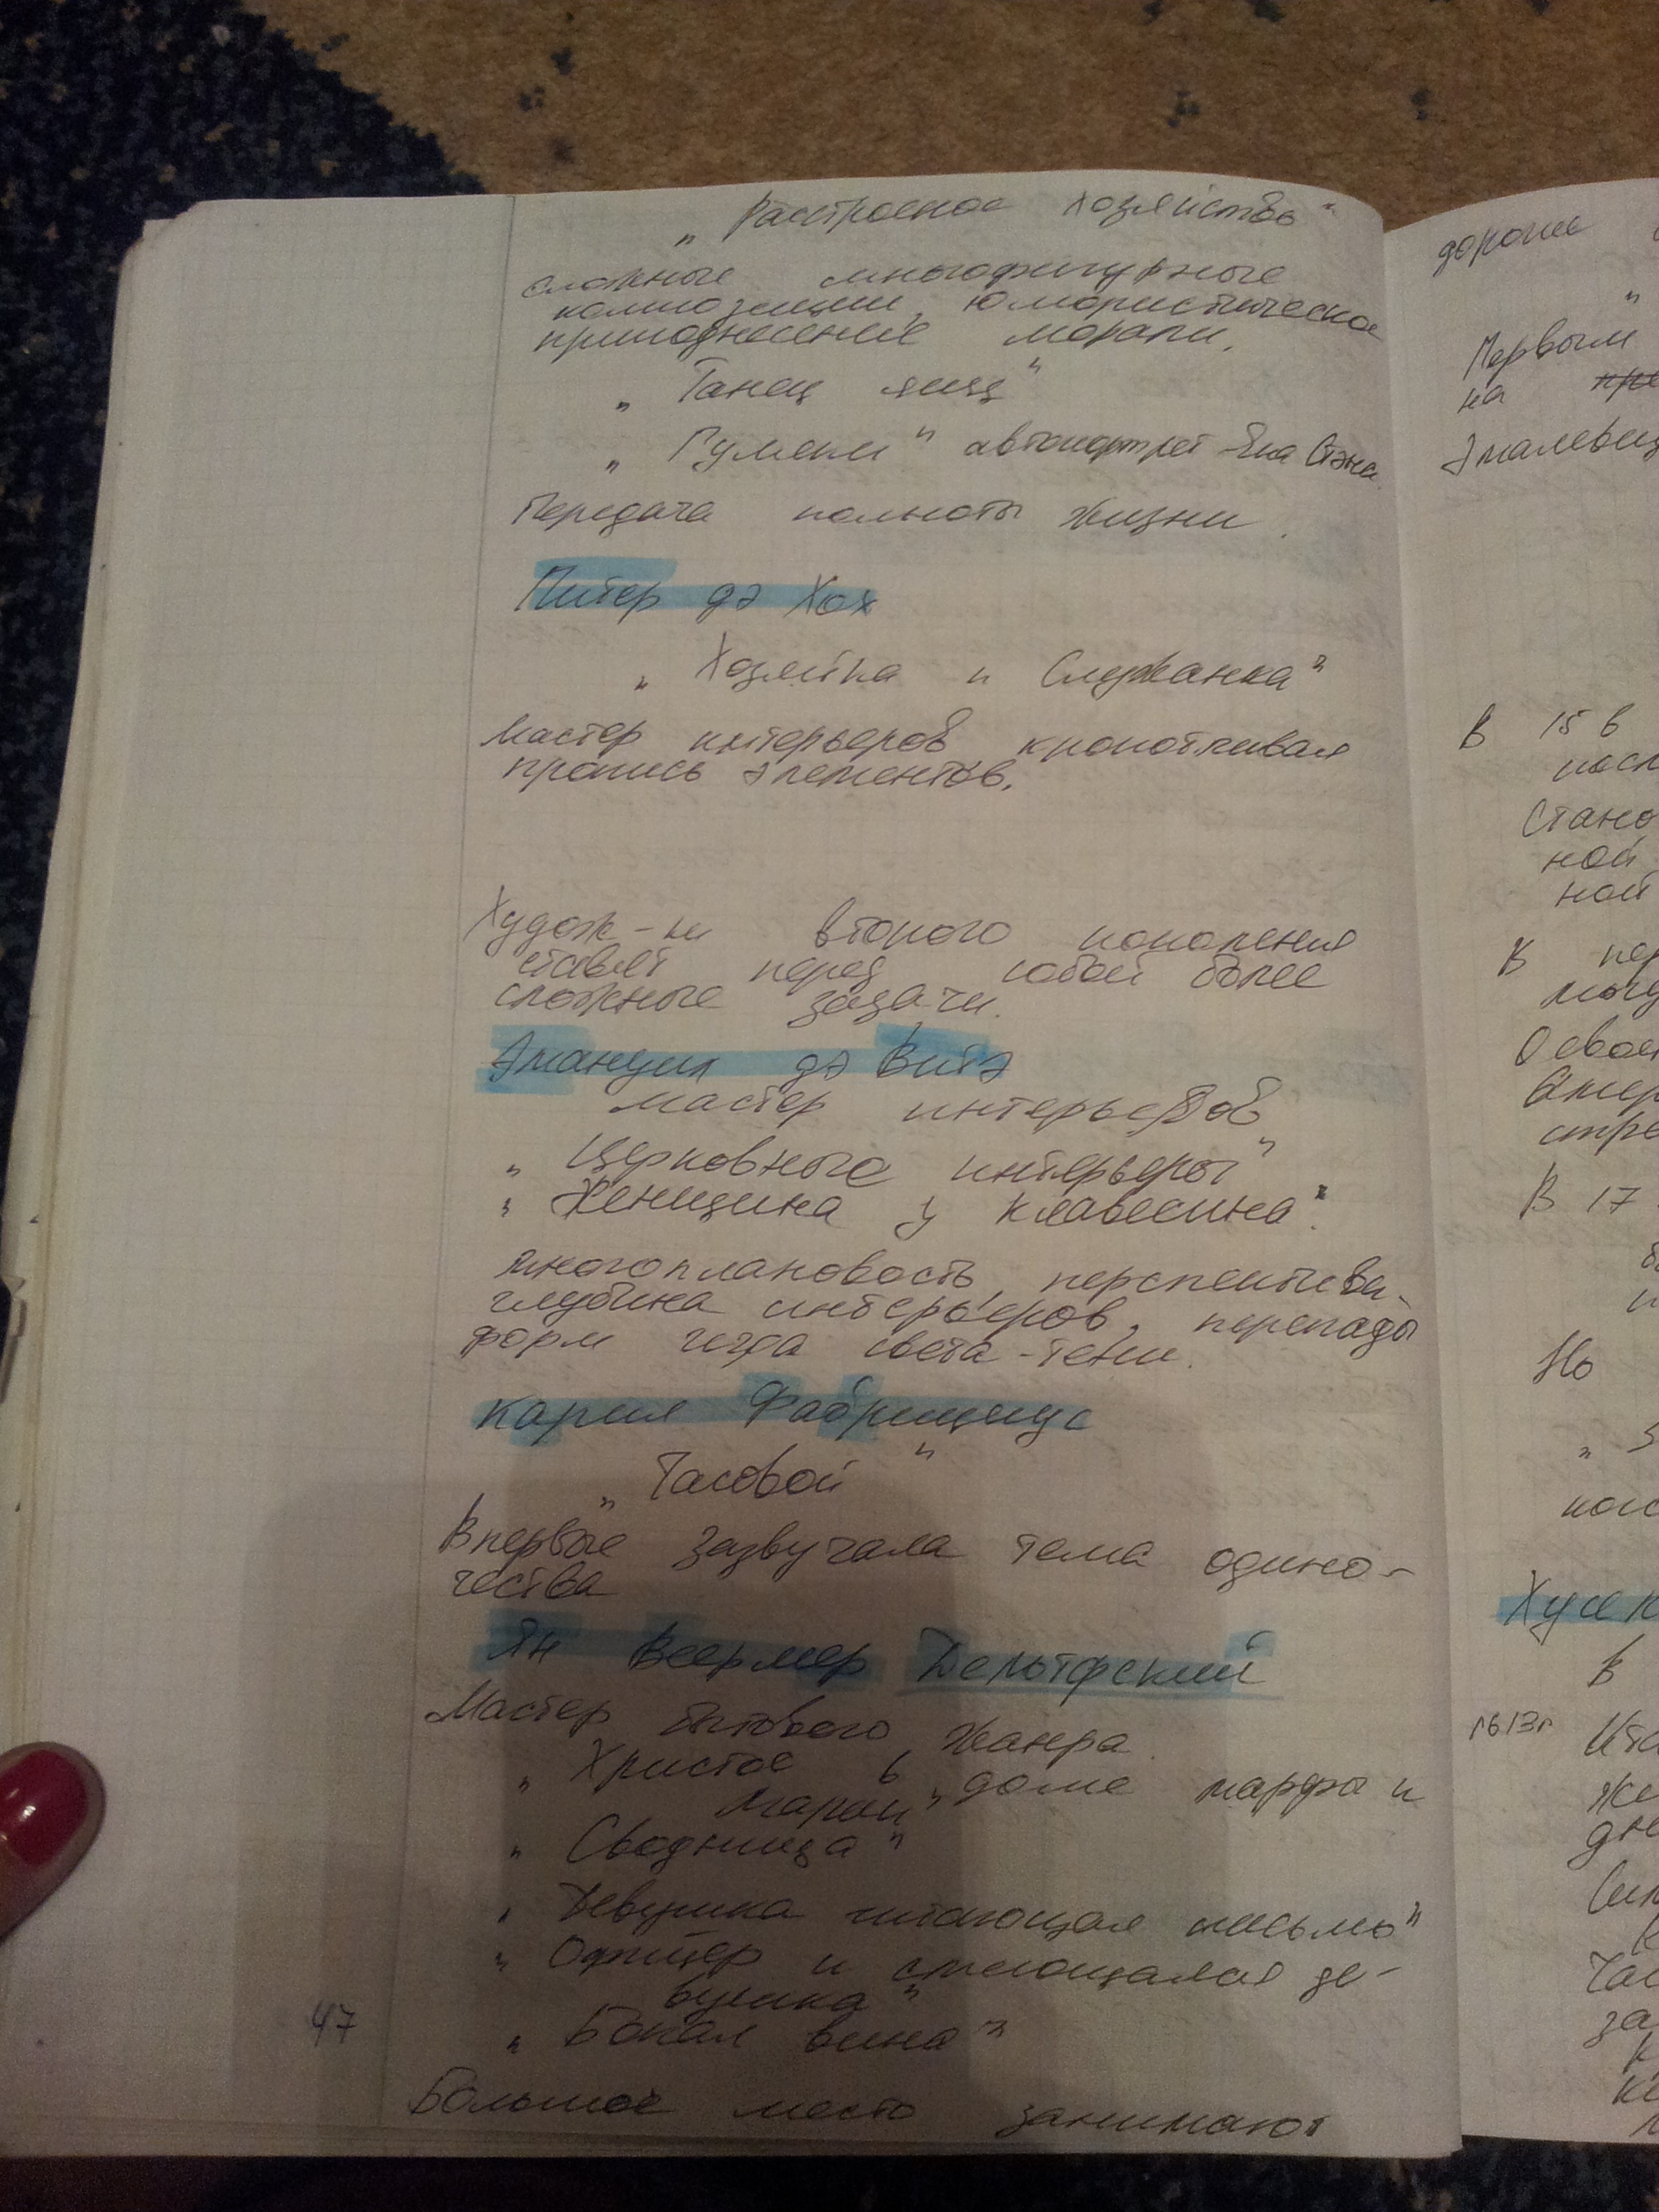 „ Расстроеное хозяйство "
сложные многофигурные
композиции, юмористическое
приподнесение морали.
„ Танец яиц "
„ Гуляки " автопортрет Яна Стэна
Передача полноты жизни.
Питер дэ Хох
„ Хозяйка и Служанка "
Мастер интерьеров кропотливая
пропись элементов.
Худож-ки второго поколения
ставят перед собой более
сложные задачи.
Эмануил дэ Витэ
мастер интерьеров
„ Церковного интерьеры "
„ Женщина у клавесина ".
многоплановость, перспектива,
глубина интерьеров, перепады
форм игра света-тени.
Карил Фабрициус
„ Часовой "
Впервые зазвучала тема одино-
чества
Ян Веермер Дельтфский
Мастер бытового жанра.
„ Христос в доме марфы и
Марии "
„ Сводница "
„ Девушка читающая письмо "
„ Офицер и смеющаяся де-
вушка "
„ Бокал вина "
47
Большое место занимают
дорогие
„
Первым
на
В 15 в
посл
Стано
ной
ной
В пер
Освое
В 17
Но
„ З
В
1613г
Ита
Же
дне
за